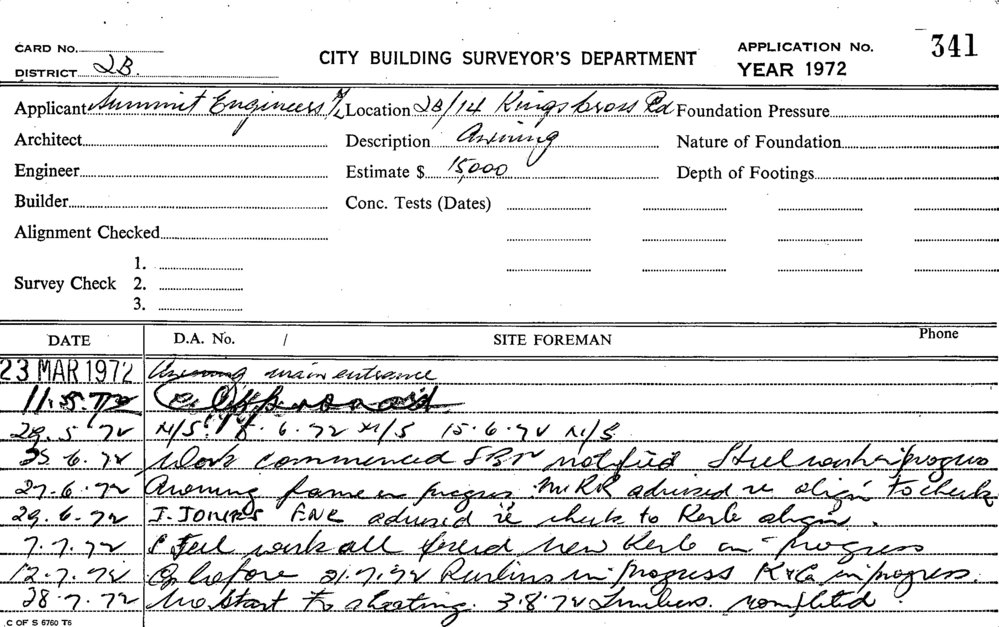 CARD No.
DISTRICT 2B.
CITY BUILDING SURVEYOR'S DEPARTMENT
APPLICATION No. 341
YEAR 1972
Applicant Summit Engineers P/L Location 2B/14 Kings Cross Rd Foundation Pressure
Architect Description Awning Nature of Foundation
Engineer Estimate $ 15,000 Depth of Footings
Builder Conc. Tests (Dates)
Alignment Checked
1.
Survey Check 2.
3.
DATE D.A. No. / SITE FOREMAN Phone
23 MAR 1972 Awning main entrance
11.5.72
29.5.72 N/S 6.72 N/S 15.6.72 N/S
25.6.72 Work commenced notified Steel work in progress
27.6.72 Awning frame in progress. Mr RR advised re align to check
29.6.72 ENR advised re check to Kerb align.
7.7.72 Steel work all fixed new Kerb in progress
12.7.72 before 21.7.72 Purlins in progress K&G in progress.
28.7.72 No Start to sheeting. 3.8.72 completed.
C OF S 6760 T6